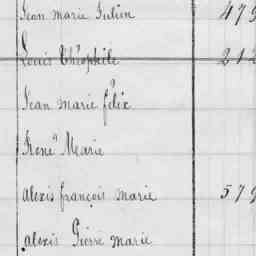 Jean Marie Julien 479
Louis Théophile 212
Jean Marie félix
René Marie
alexis françois Marie 579
alexis Pierre Marie